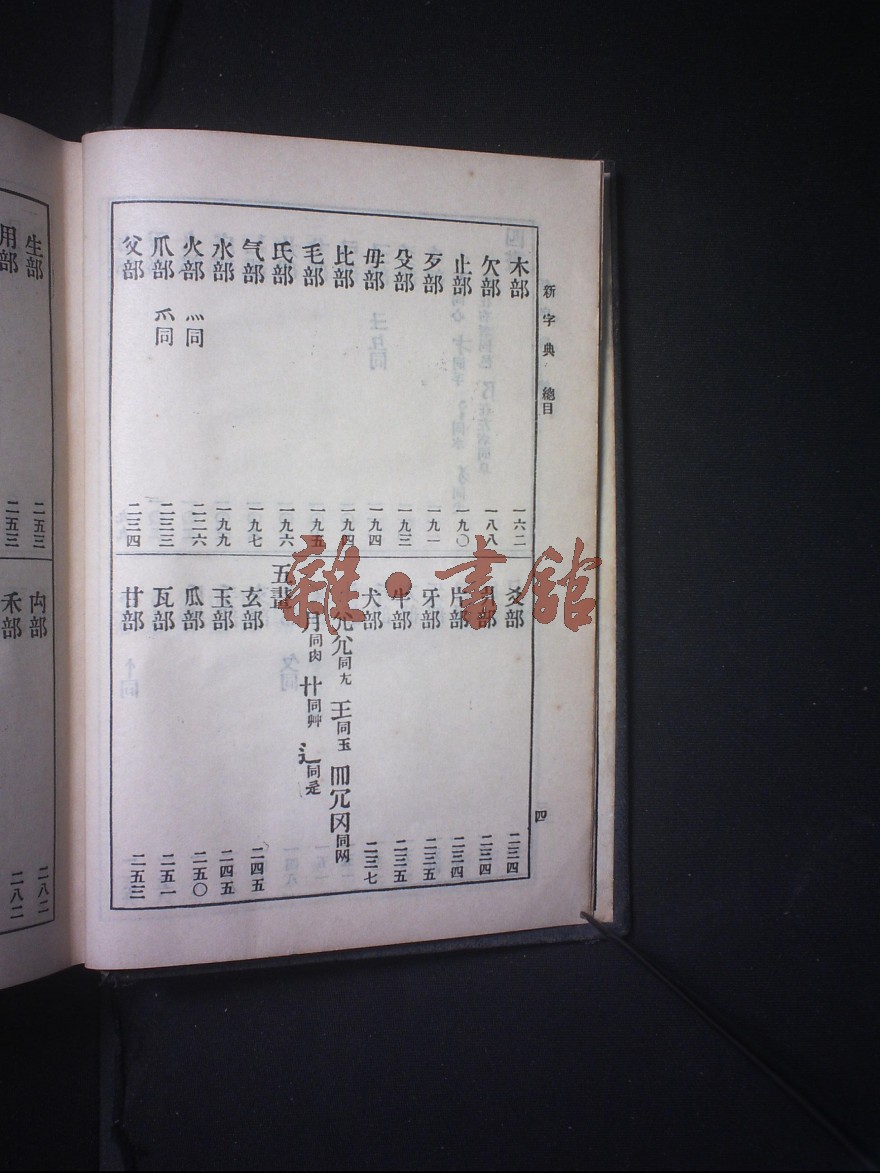 新字典 總目 四
木部 一六二
欠部 一八八
止部 一九〇
歹部 一九一
殳部 一九三
毋部 一九四
比部 一九四
毛部 一九五
氏部 一九六
气部 一九七
水部 一九九
火部 灬同 二二六
爪部 爫同 二三三
父部 二三四
爻部 二三四
爿部 二三四
片部 二三四
牙部 二三五
牛部 二三五
犬部 二三七
同尢 王同玉 同网
月同肉 同艸 辶同辵
五畫
玄部 二四五
玉部 二四五
瓜部 二五〇
瓦部 二五一
甘部 二五三
生部 二五三
用部 二五三
禸部 二八二
禾部 二八二
雜·書館